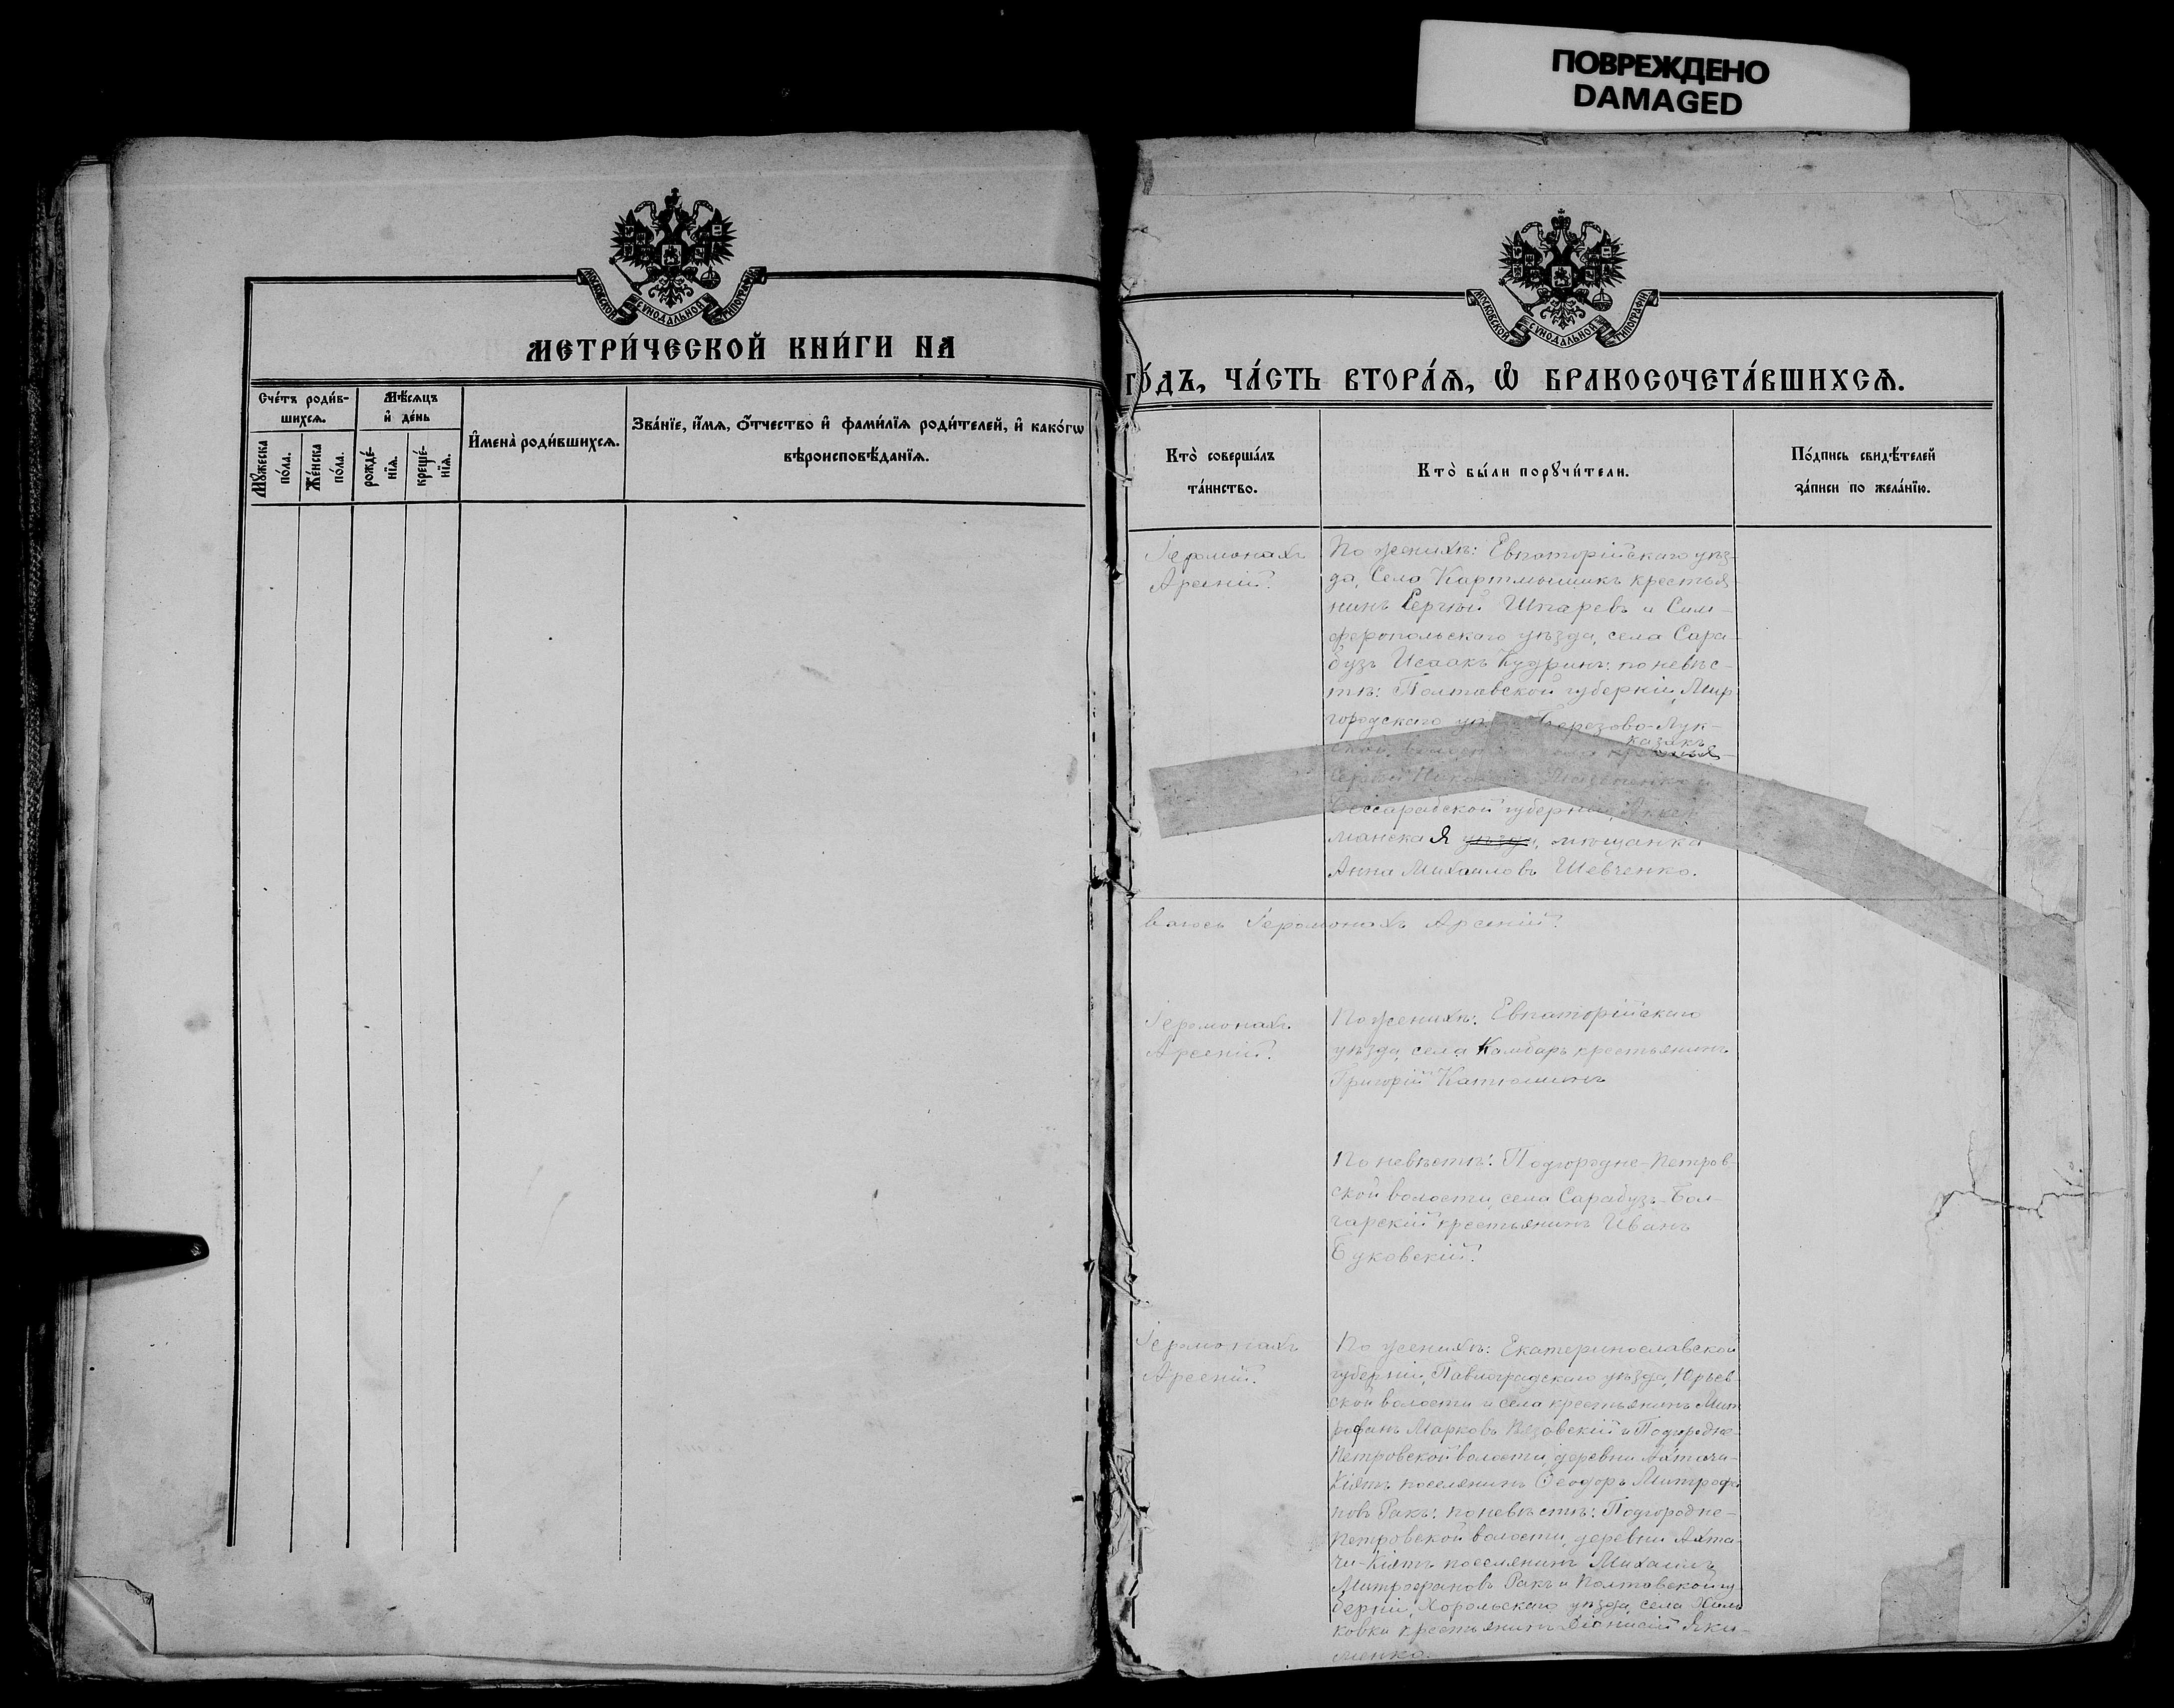 ПОВРЕЖДЕНО
DAMAGED
МОСКОВСКОЙ СѴНОДАЛЬНОЙ ТИПОГРАФІИ
МЕТРИ́ЧЕСКОЙ КНИ́ГИ НА
Сче́тъ роди́в-
шихсѧ.
Мѣ́сѧцъ
и҆ де́нь
И҆мена̀ роди́вшихсѧ.
Зва́нїе, и҆́мѧ, ѻ҆́тчество и҆ фами́лїѧ роди́телей, и҆ како́гѡ
вѣроисповѣ́данїѧ.
Мꙋ́жеска
по́ла.
Же́нска
по́ла.
рожде́-
нїѧ.
креще́-
нїѧ.
МОСКОВСКОЙ СѴНОДАЛЬНОЙ ТИПОГРАФІИ
ГО́ДЪ, ЧА́СТЬ ВТОРА́Ѧ, Ѡ҆ БРАКОСОЧЕТА́ВШИХСѦ.
Кто̀ соверша́лъ
та́инство.
Кто̀ бы́ли порꙋчи́тели.
По́дпись свидѣ́телей
за́писи по жела́нїю.
Іеромонахъ
Арсеній.
По женихѣ: Евпаторійскаго уѣз-
да, села Картмышикъ крестья-
нинъ Сергѣй Шпаревъ и Сим-
феропольскаго уѣзда, села Сара-
бузъ Исаакъ Кудринъ; по невѣс-
тѣ: Полтавской губерніи, Мир-
городскаго Березово-Лук-
казакъ
ской
Сергѣй
Бессарабской губерніи, Аккер-
манская уѣзда, мѣщанка
Анна Михаиловъ Шевченко.
ваюсь Іеромонахъ Арсеній.
Іеромонахъ
Арсеній.
По женихѣ: Евпаторійскаго
уѣзда, села Камбаръ крестьянинъ
Григорій Катюшинъ
По невѣстѣ: Подгородне-Петров-
ской волости, села Сарабузъ-Бол-
гарскій крестьянинъ Иванъ
Буковскій.
Іеромонахъ
Арсеній.
По женихѣ: Екатеринославской
губерніи, Павлоградскаго уѣзда, Юрьев-
ской волости и села крестьянинъ Мит-
рофанъ Марковъ и Подгородне-
Петровской волости, деревни Ахтачи-
Кіятъ поселянинъ Ѳеодоръ Митрофа-
новъ Ракъ; по невѣстѣ: Подгородне-
Петровской волости, деревни Ахта-
чи-Кіятъ поселянинъ Михаилъ
Митрофановъ Ракъ и Полтавской гу-
берніи, Хорольскаго уѣзда, села Хиль-
ковки крестьянинъ Діонисій Яки-
менко.